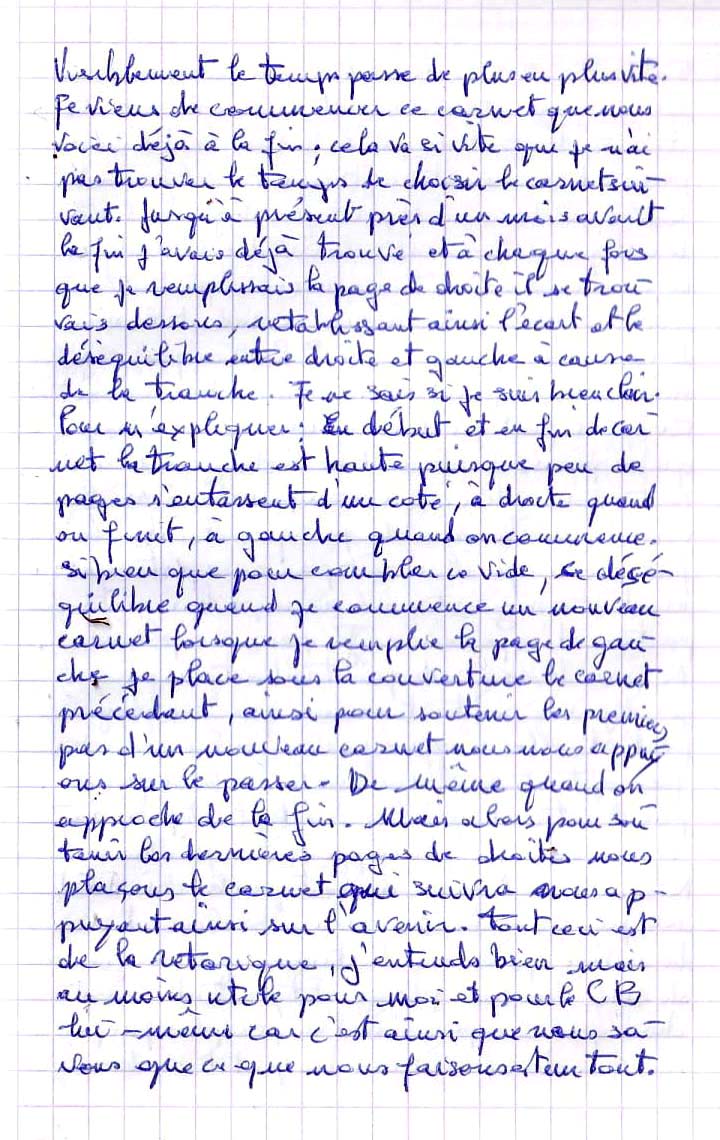 Visiblement le temps passe de plus en plus vite.
Je viens de commencer ce carnet que nous
voici déjà à la fin ; cela va si vite que je n'ai
pas trouver le temps de choisir le carnet sui-
vant. Jusqu'à présent près d'un mois avant
la fin j'avais déjà trouvé et à chaque fois
que je remplissais la page de droite il se trou-
vais dessous, retablissant ainsi l'écart et le
déséquilibre entre droite et gauche à cause
de la tranche. Je ne sais si je suis bien clair.
Pour m'expliquer : En début et en fin de car-
net la tranche est haute puisque peu de
pages s'entassent d'un coté, à droite quand
on finit, à gauche quand on commence.
Si bien que pour combler ce vide, ce désé-
quilibre quand je commence un nouveau
carnet lorsque je remplie la page de gau-
che je place sous la couverture le carnet
précédant, ainsi pour soutenir les premiers
pas d'un nouveau carnet nous nous appuy-
ons sur le passer. De même quand on
approche de la fin. Mais alors pour sou-
tenir les dernières pages de droites nous
plaçons le carnet qui suivra nous ap-
puyant ainsi sur l'avenir. Tout ceci est
de la retorique, j'entends bien mais
au moins utile pour moi et pour le CB
lui-même car c'est ainsi que nous sa-
vons que ce que nous faisons est un tout.